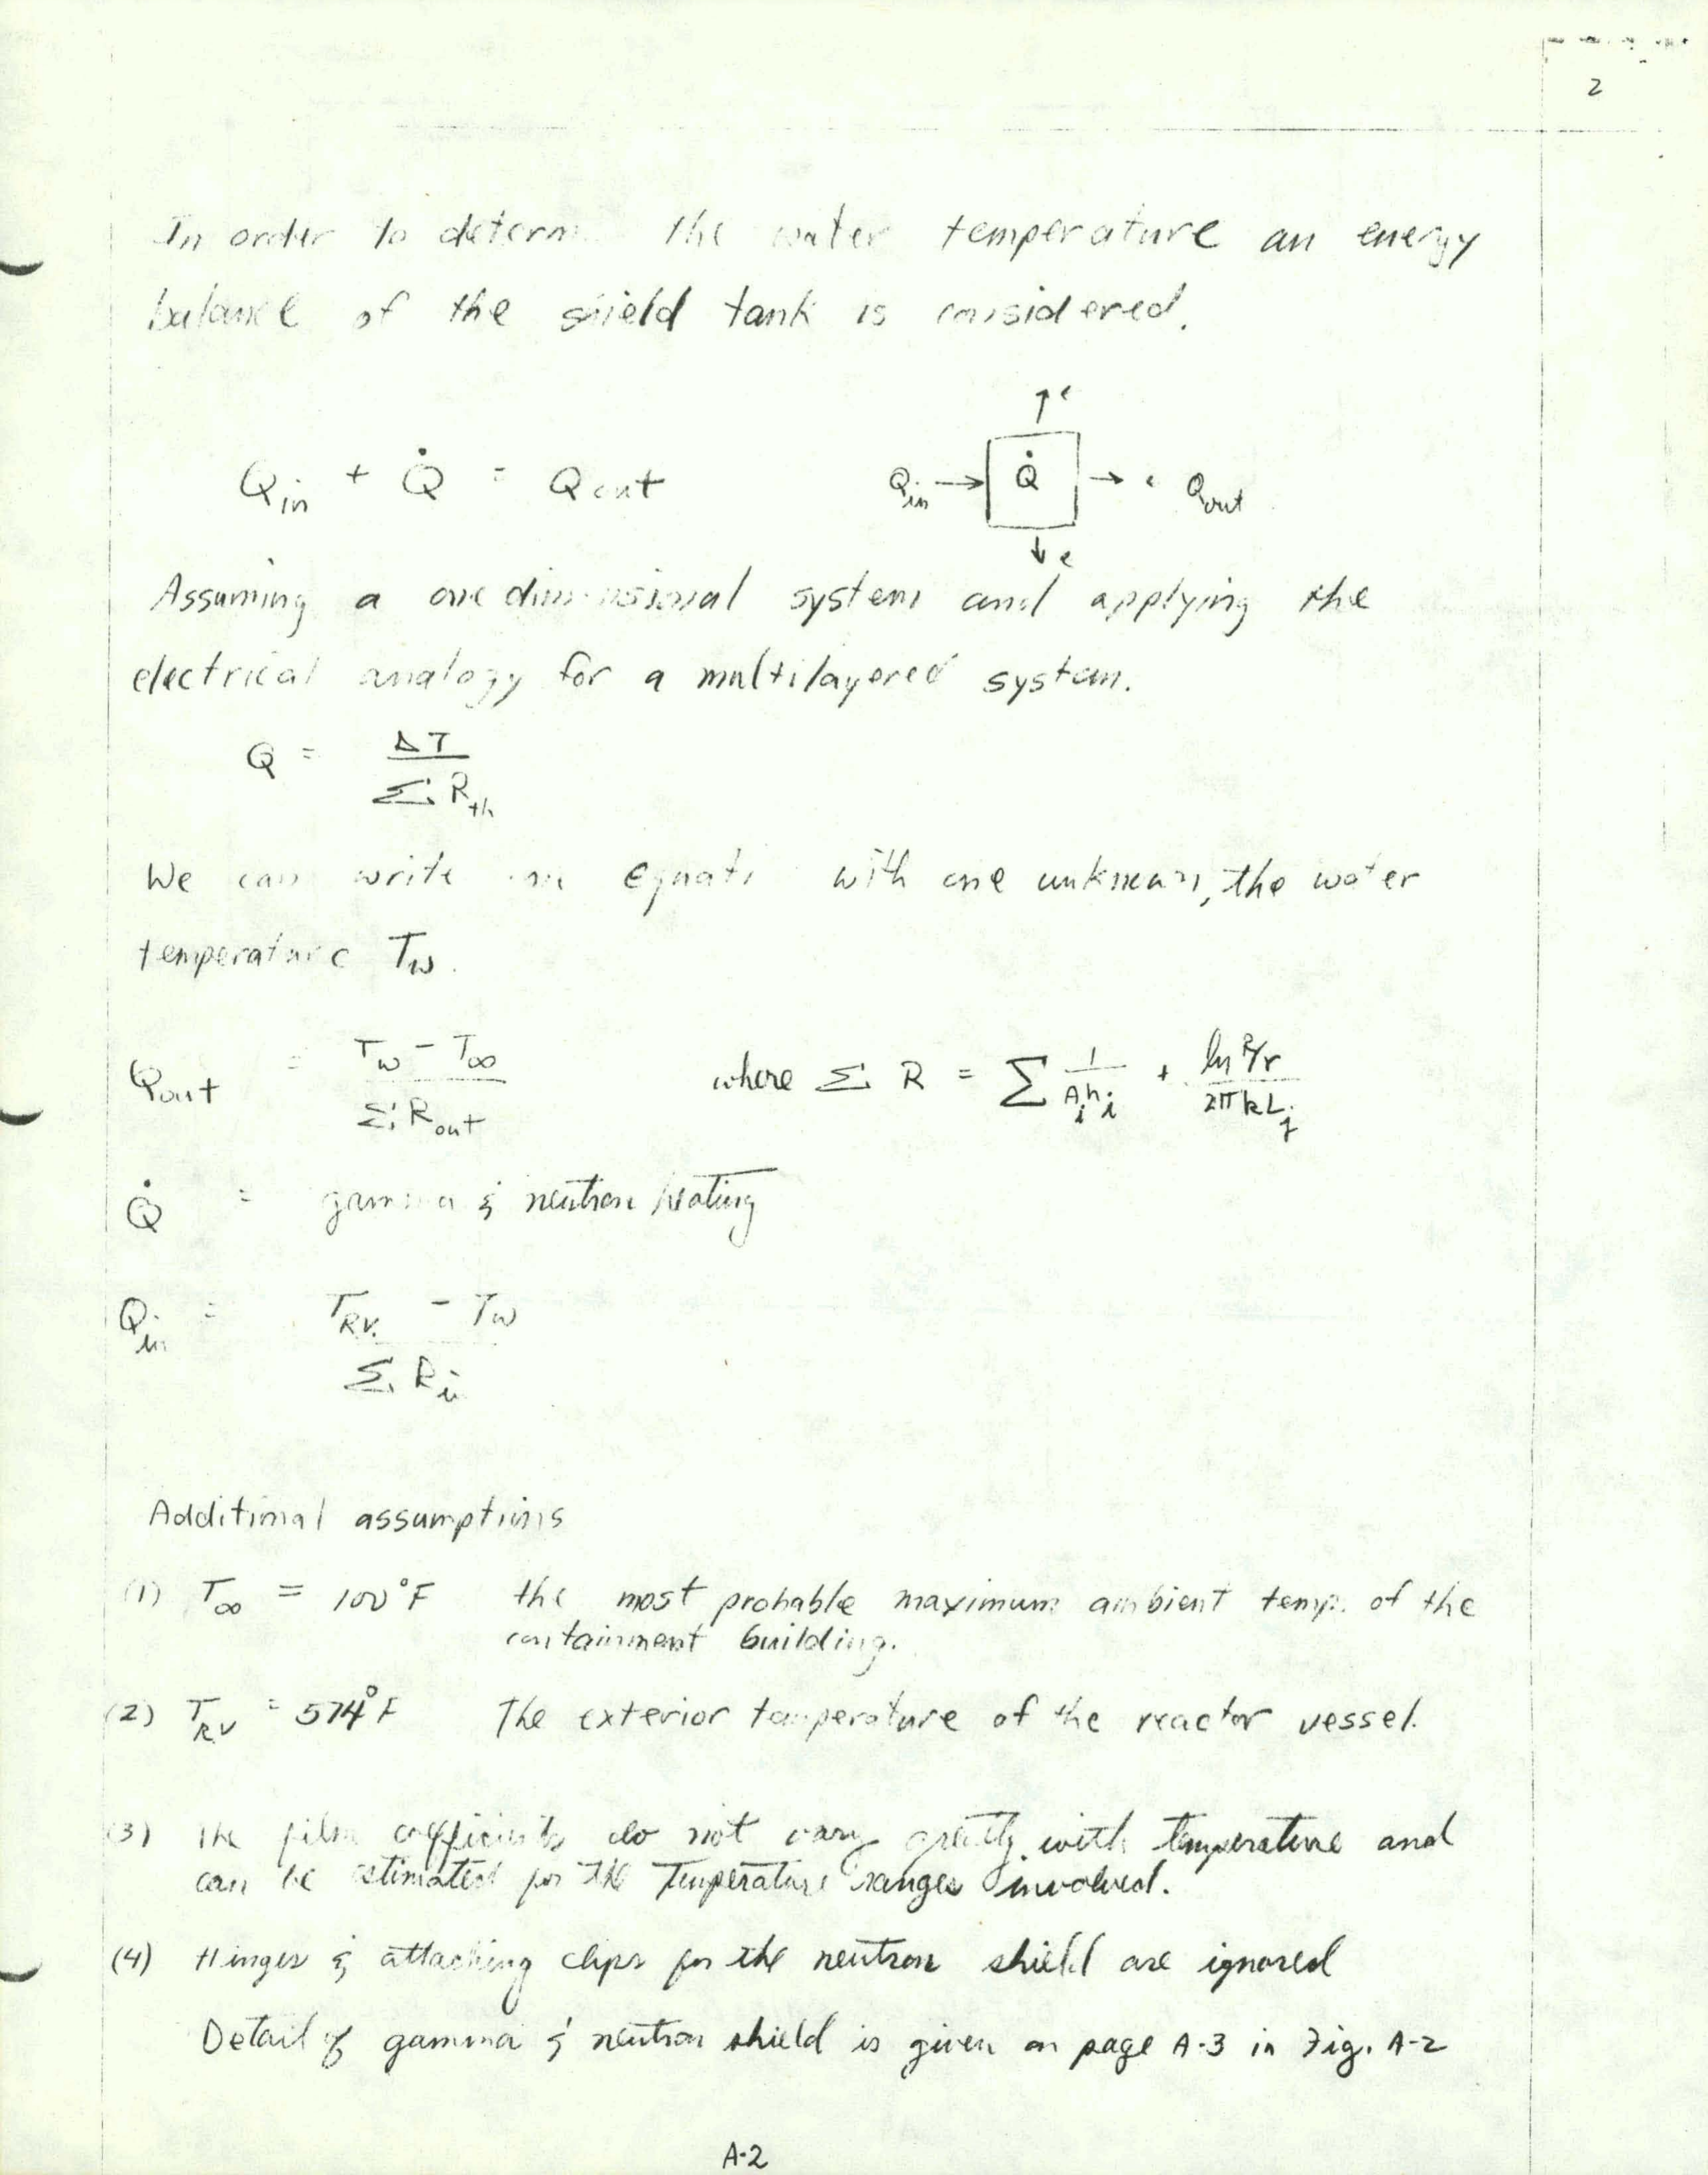 2
In order to determ the water temperature an energy
balance of the shield tank is considered.
Q_in + Q̇ = Q_out
Q_in → Q̇ → Q_out
Assuming a one dimensional system and applying the
electrical analogy for a multilayered system.
Q = ΔT / Σ R_th
We can write equati with one unknown, the water
temperature T_w.
Q_out = (T_w - T_∞) / Σ R_out where Σ R = Σ 1/(A_i h_i) + ln R/r / (2πkL_j)
Q̇ = gamma & neutron heating
Q_in = (T_RV. - T_w) / Σ R_in
Additional assumptions
(1) T_∞ = 100°F the most probable maximum ambient temp. of the
containment building.
(2) T_RV = 574°F The exterior temperature of the reactor vessel.
(3) The film coefficients do not vary greatly with temperature and
can be estimated for the temperature ranges involved.
(4) Hinges & attaching clips for the neutron shield are ignored
Detail of gamma & neutron shield is given on page A-3 in Fig. A-2
A-2